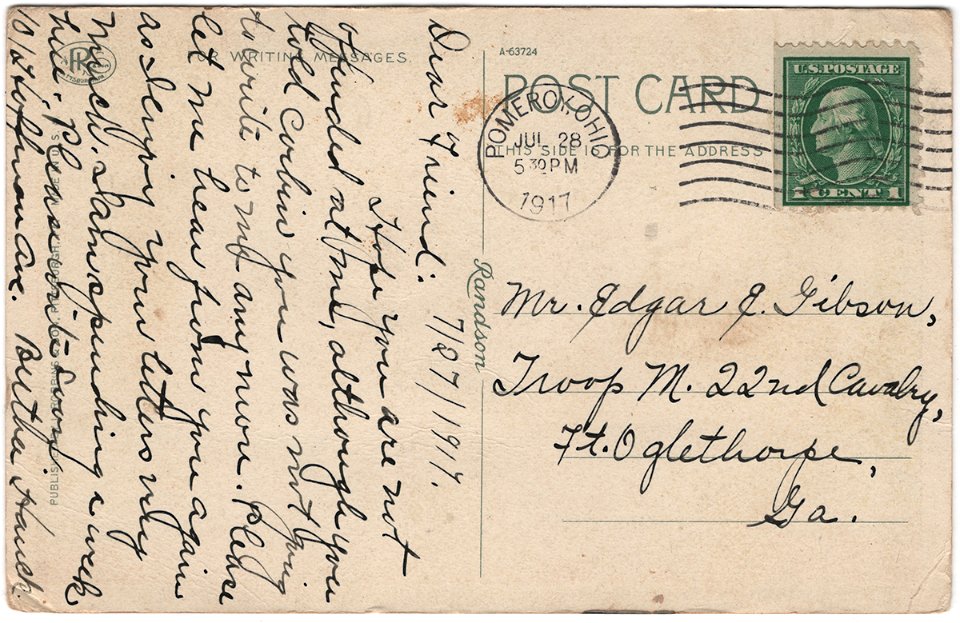 Dear Friend: 7/27/1917.
Hope you are not
ofended at me, although you
told Corbin you was not going
to write to me any more. Please
let me hear from you again
as I enjoy your letters very
much. I am spending a week
here. Please write
Hoffman Ave. Bertha
FOR WRITING MESSAGES.
A-63724
POST CARD
THIS SIDE IS FOR THE ADDRESS
POMEROY, OHIO
JUL 28
5 30 PM
1917
U.S. POSTAGE
1 CENT 1
Randson
Mr. Edgar E. Gibson,
Troop M. 22nd Cavalry,
Ft. Oglethorpe,
Ga.